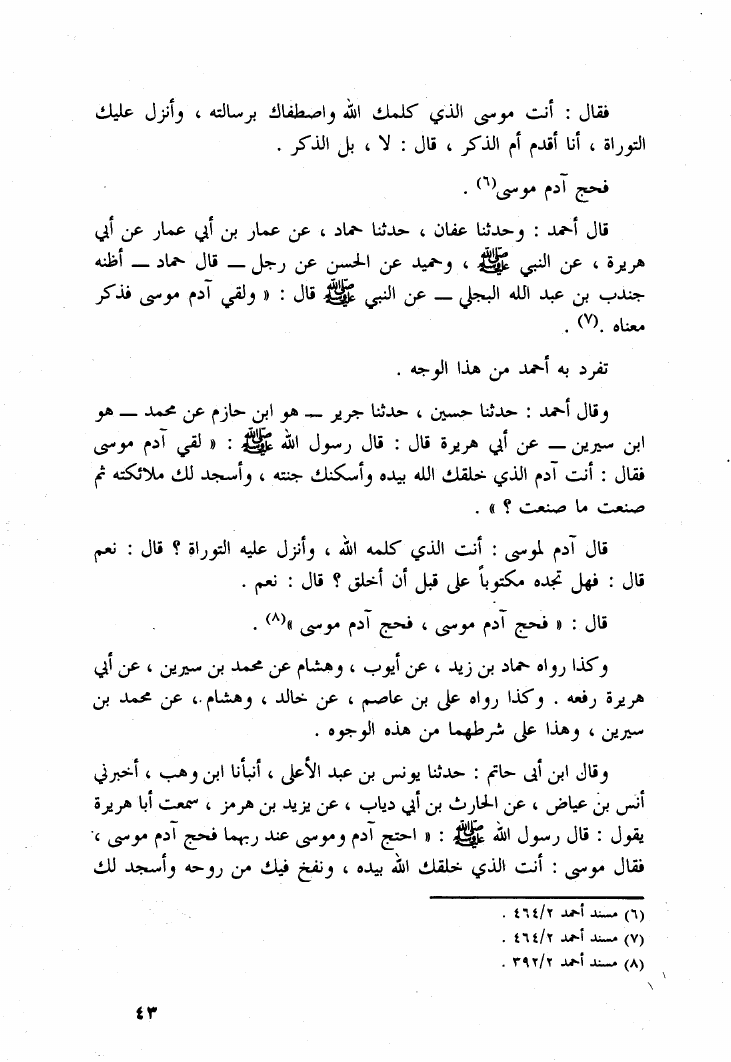 فقال : أنت موسى الذي كلمك الله واصطفاك برسالته ، وأنزل عليك
التوراة ، أنا أقدم أم الذكر ، قال : لا ، بل الذكر .
فحج آدم موسى(٦) .
قال أحمد : وحدثنا عفان ، حدثنا حماد ، عن عمار بن أبي عمار عن أبي
هريرة ، عن النبي ﷺ ، وحميد عن الحسن عن رجل ــ قال حماد ــ أظنه
جندب بن عبد الله البجلي ــ عن النبي ﷺ قال : « ولقي آدم موسى فذكر
معناه .(٧) .
تفرد به أحمد من هذا الوجه .
وقال أحمد : حدثنا حسين ، حدثنا جرير ــ هو ابن حازم عن محمد ــ هو
ابن سيرين ــ عن أبي هريرة قال : قال رسول الله ﷺ : « لقي آدم موسى
فقال : أنت آدم الذي خلقك الله بيده وأسكنك جنته ، وأسجد لك ملائكته ثم
صنعت ما صنعت ؟ » .
قال آدم لموسى : أنت الذي كلمه الله ، وأنزل عليه التوراة ؟ قال : نعم
قال : فهل تجده مكتوباً على قبل أن أخلق ؟ قال : نعم .
قال : « فحج آدم موسى ، فحج آدم موسى »(٨) .
وكذا رواه حماد بن زيد ، عن أيوب ، وهشام عن محمد بن سيرين ، عن أبي
هريرة رفعه . وكذا رواه على بن عاصم ، عن خالد ، وهشام ، عن محمد بن
سيرين ، وهذا على شرطهما من هذه الوجوه .
وقال ابن أبى حاتم : حدثنا يونس بن عبد الأعلى ، أنبأنا ابن وهب ، أخبرني
أنس بن عياض ، عن الحارث بن أبي دياب ، عن يزيد بن هرمز ، سمعت أبا هريرة
يقول : قال رسول الله ﷺ : « احتج آدم وموسى عند ربهما فحج آدم موسى ،
فقال موسى : أنت الذي خلقك الله بيده ، ونفخ فيك من روحه وأسجد لك
(٦) مسند أحمد ٤٦٤/٢ .
(٧) مسند أحمد ٤٦٤/٢ .
(٨) مسند أحمد ٣٩٢/٢ .
٤٣